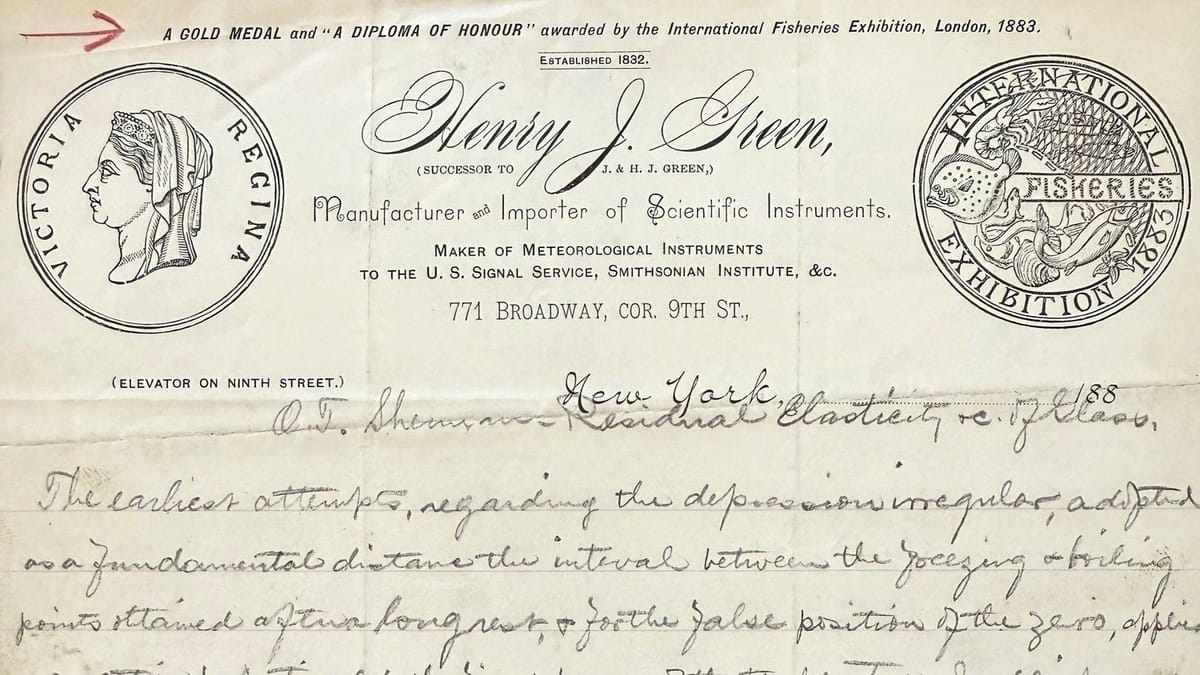 A GOLD MEDAL and "A DIPLOMA OF HONOUR" awarded by the International Fisheries Exhibition, London, 1883.
ESTABLISHED 1832.
VICTORIA REGINA
Henry J. Green,
(SUCCESSOR TO J. & H. J. GREEN,)
Manufacturer and Importer of Scientific Instruments.
MAKER OF METEOROLOGICAL INSTRUMENTS
TO THE U. S. SIGNAL SERVICE, SMITHSONIAN INSTITUTE, &C.
771 BROADWAY, COR. 9TH ST.,
INTERNATIONAL
FISHERIES
EXHIBITION 1883
(ELEVATOR ON NINTH STREET.)
New York, 188
O.T. Sherman - Residual Elasticity &c. of Glass.
The earliest attempts, regarding the depression irregular, adopted
as a fundamental distance the interval between the freezing & boiling
points obtained after long rest, & for the false position of the zero, applied